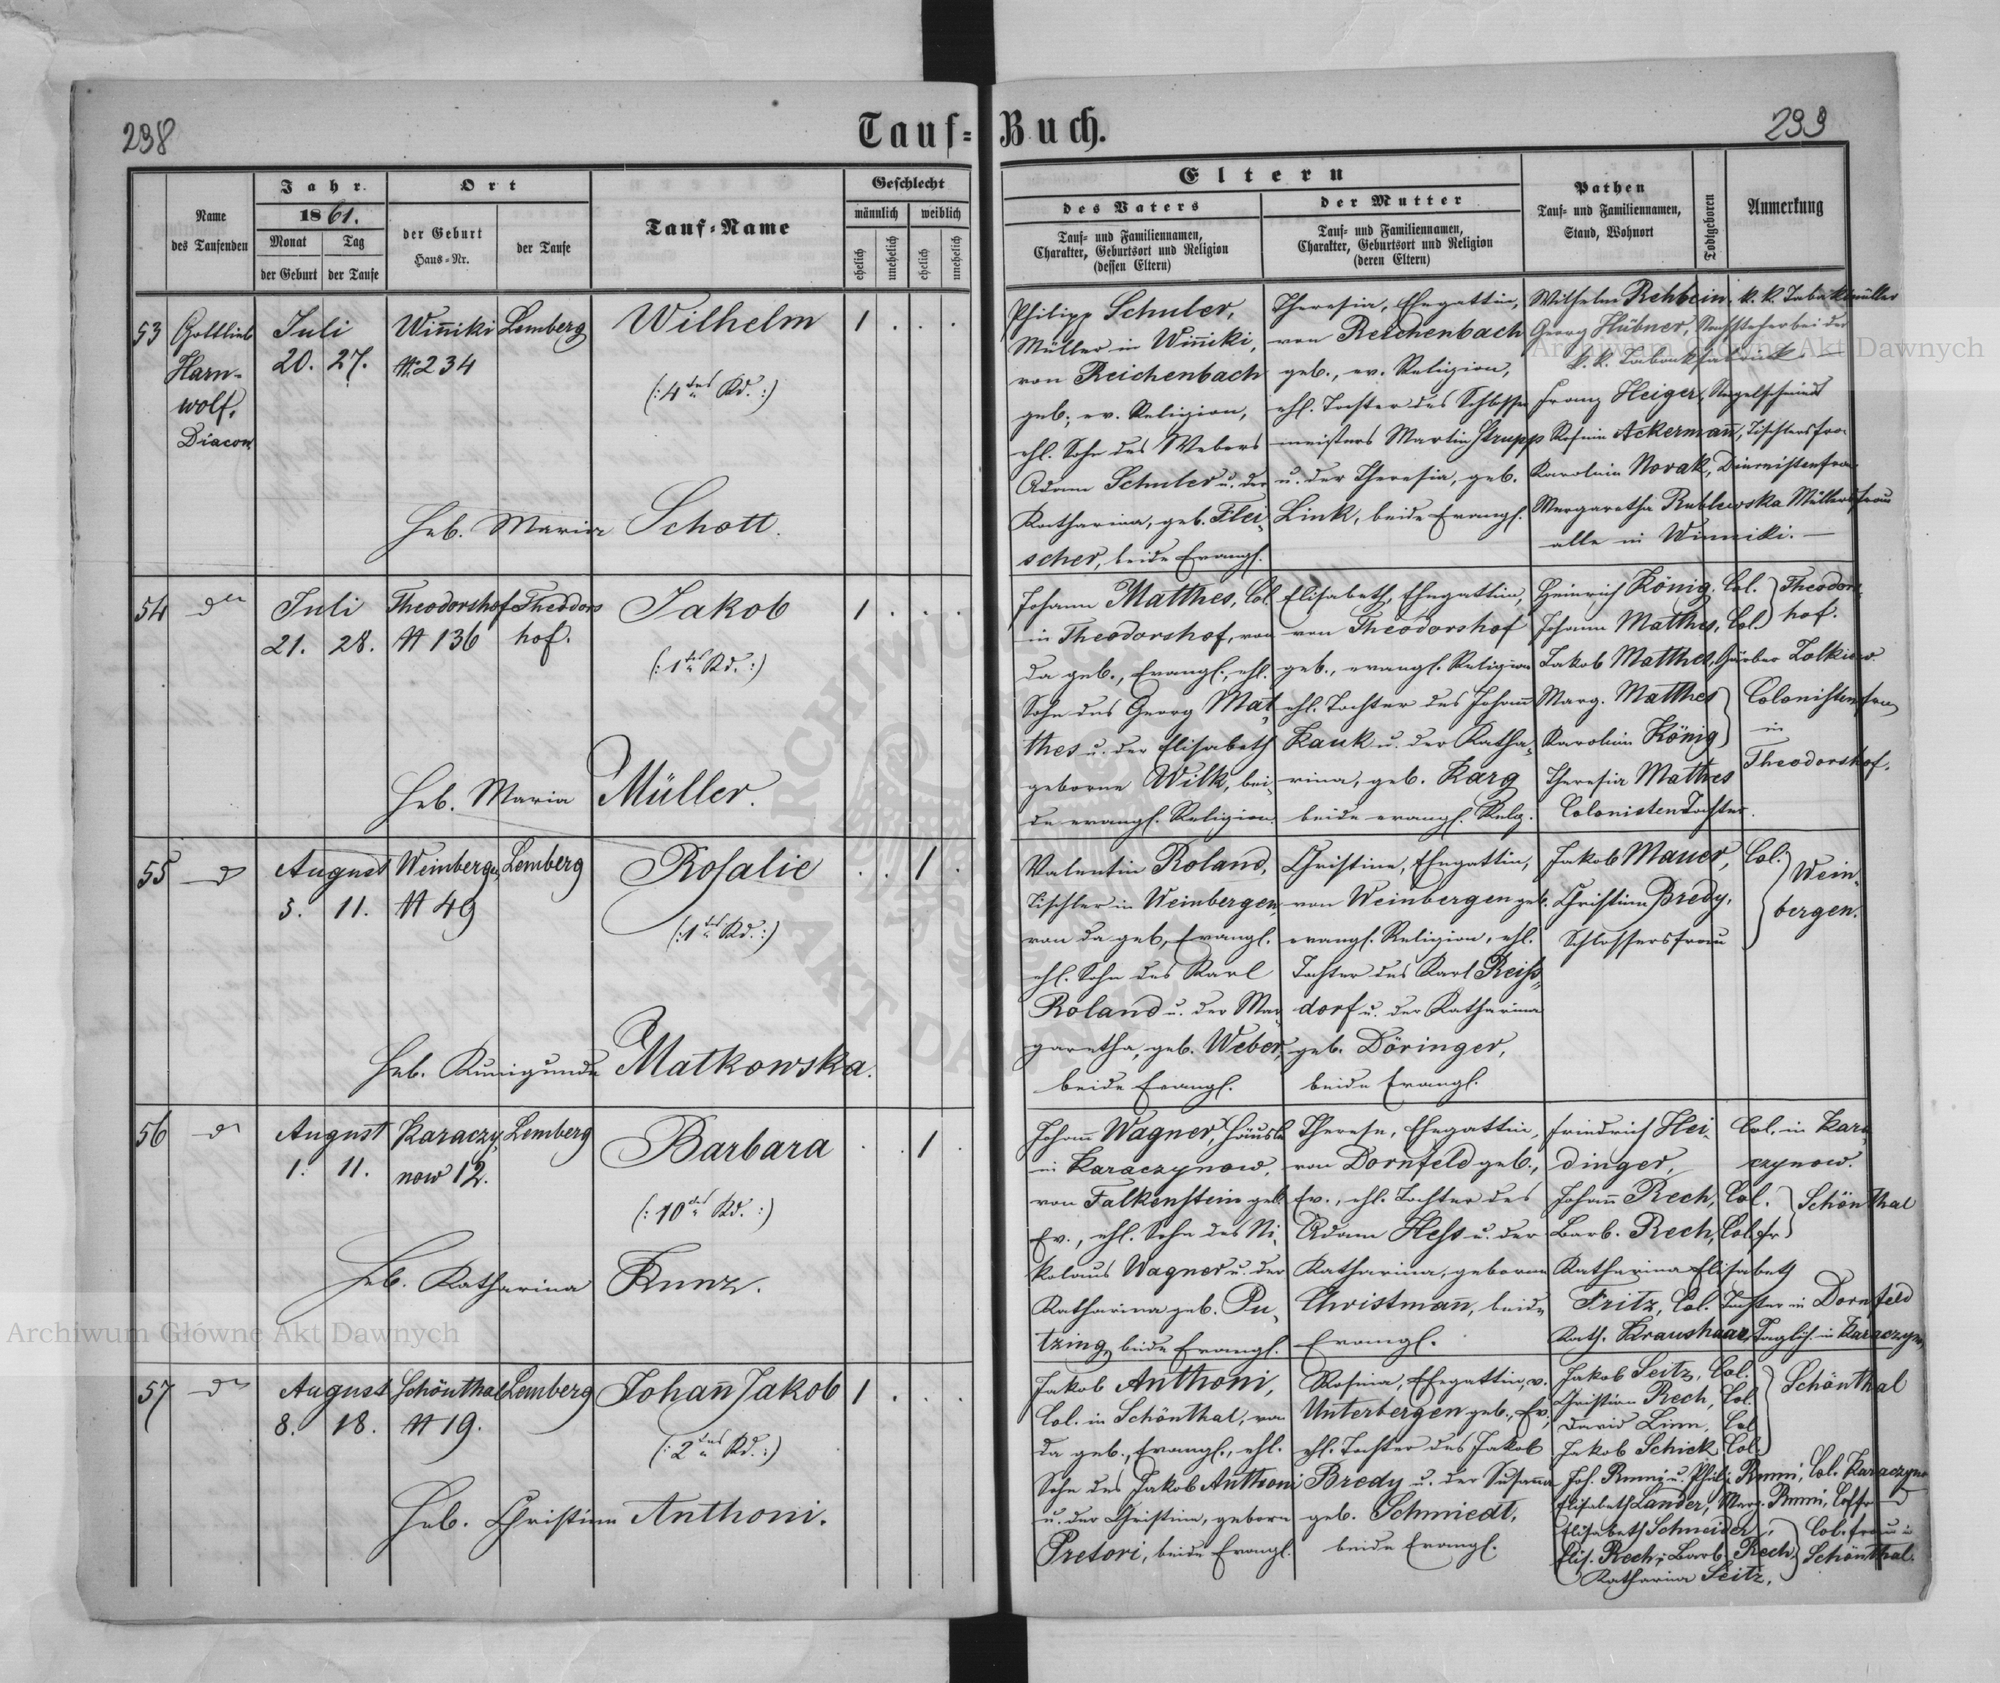 238
Tauf-
Buch.
239
Name
des Taufenden
Jahr.
1861.
Monat
Tag
der Geburt
der Taufe
Ort
der Geburt
Haus-Nr.
der Taufe
Tauf-Name
Geschlecht
männlich
weiblich
ehelich
unehelich
ehelich
unehelich
Eltern
des Vaters
Tauf- und Familiennamen,
Charakter, Geburtsort und Religion
(dessen Eltern)
der Mutter
Tauf- und Familiennamen,
Charakter, Geburtsort und Religion
(deren Eltern)
Pathen
Tauf- und Familiennamen,
Stand, Wohnort
Todtgeboren
Anmerkung
53
Gottlieb
Harn-
wolf,
Diacon
Juli
20. 27.
Win̄iki
№ 234
Lemberg
Wilhelm
(: 4tes Kd. :)
1 . . .
Heb. Maria Schott.
Philipp Schuler,
Müller in Win̄iki,
von Reichenbach
geb., ev. Religion,
ehl. Sohn des Webers
Adam Schuler u. der
Katharina, geb. Flei-
scher, beide Evangl.
Theresia, Ehegattin,
von Reichenbach
geb., ev. Religion,
ehl. Tochter des Schlosser
meisters Martin Strupp
u. der Theresia, geb.
Link, beide Evangl.
Wilhelm Rehbein, k. k. Tabakmüller
Georg Hübner, bei der
k. k. Tabakfabrik. —
Franz Heiger, Nagelschmied
Rosina Ackerman̄, Tischlersfrau
Karolina Novak,
Margaretha Rublewska Müllersfrau
alle in Winniki. —
54
dto
Juli
21. 28.
Theodorshof
№ 136
Theodors
hof.
Jakob
(: 1tes Kd. :)
1 . . .
Heb. Maria Müller.
Johann Matthes, Col.
in Theodorshof, von
da geb., Evangl., ehl.
Sohn des Georg Mat-
thes u. der Elisabeth
geborne Wilk, bei-
de evangl. Religion.
Elisabeth, Ehegattin,
von Theodorshof
geb., evangl. Religion
ehl. Tochter des Johan̄
Kauk u. der Katha-
rina, geb. Karg
beide evangl. Relg.
Heinrich König, Col.
Johann Matthes, Col.
Theodors-
hof.
Jakob Matthes, Gärber Zolkiew
Marg. Matthes
Karolina König
Colonistenfrau
in
Theodorshof.
Theresia Mattes
Colonisten Tochter.
55
dto
August
5. 11.
Weinbergen,
№ 49
Lemberg
Rosalie
(: 1tes Kd. :)
. . 1 .
Heb. Kunigunde Matkowska.
Valentin Roland,
Tischler in Weinbergen,
von da geb., Evangl.
ehl. Sohn des Karl
Roland u. der Mar-
garetha, geb. Weber,
beide Evangl.
Christine, Ehegattin,
von Weinbergen geb.
evangl. Religion, ehl.
Tochter des Karl Reiß-
dorf u. der Katharina
geb. Döringer,
beide Evangl.
Jakob Mauer, Col.
Christina Bredy,
Schlossersfrau
Wein-
bergen.
56
dto
August
1. 11.
Karaczy-
now 12.
Lemberg
Barbara
(: 10tes Kd. :)
. . 1 .
Heb. Katharina Kunz.
Johan̄ Wagner, Häusler
in Karaczynow,
von Falkenstein geb.
Ev., ehl. Sohn des Ni-
kolaus Wagner u. der
Katharina geb. Pu-
tzing, beide Evangl.
Therese, Ehegattin,
von Dornfeld geb.,
Ev., ehl. Tochter des
Adam Heß u. der
Katharina, geborne
Christman̄, beide
Evangl.
Friedrich Hei-
dinger,
Col. in Kara-
czynow.
Johan̄ Rech, Col.
Barb. Rech, Col. fr
Schönthal
Katharina Elisabeth
Fritz, Col. Tochter in Dornfeld
Kath. Kraushaar, Taglöh. in Karaczynow
57
dto
August
8. 18.
Schönthal
№ 19.
Lemberg
Johan̄ Jakob
(: 2tes Kd. :)
1 . . .
Heb. Christina Anthoni.
Jakob Anthoni,
Col. in Schönthal, von
da geb., Evangl., ehl.
Sohn des Jakob Anthoni
u. der Christina, geborn
Pretori, beide Evangl.
Rosina, Ehegattin, v.
Unterbergen geb., Ev.,
ehl. Tochter des Jakob
Bredy u. der Susanna
geb. Schmiedt,
beide Evangl.
Jakob Seitz, Col.
Christian Rech, Col.
David Linn, Col
Jakob Schick, Col.
Schönthal
Joh. Rmmi u. Phili. Rmmi, Col. Karaczynow
Elisabeth Lander, Marg. Rmmi,
Elisabeth Schneider,
Elis. Rech, Barb. Rech
Katharina Seitz,
Col. frau in
Schönthal.
Archiwum Główne Akt Dawnych
Archiwum Główne Akt Dawnych
ARCHIWUM
AKT DAWNYCH